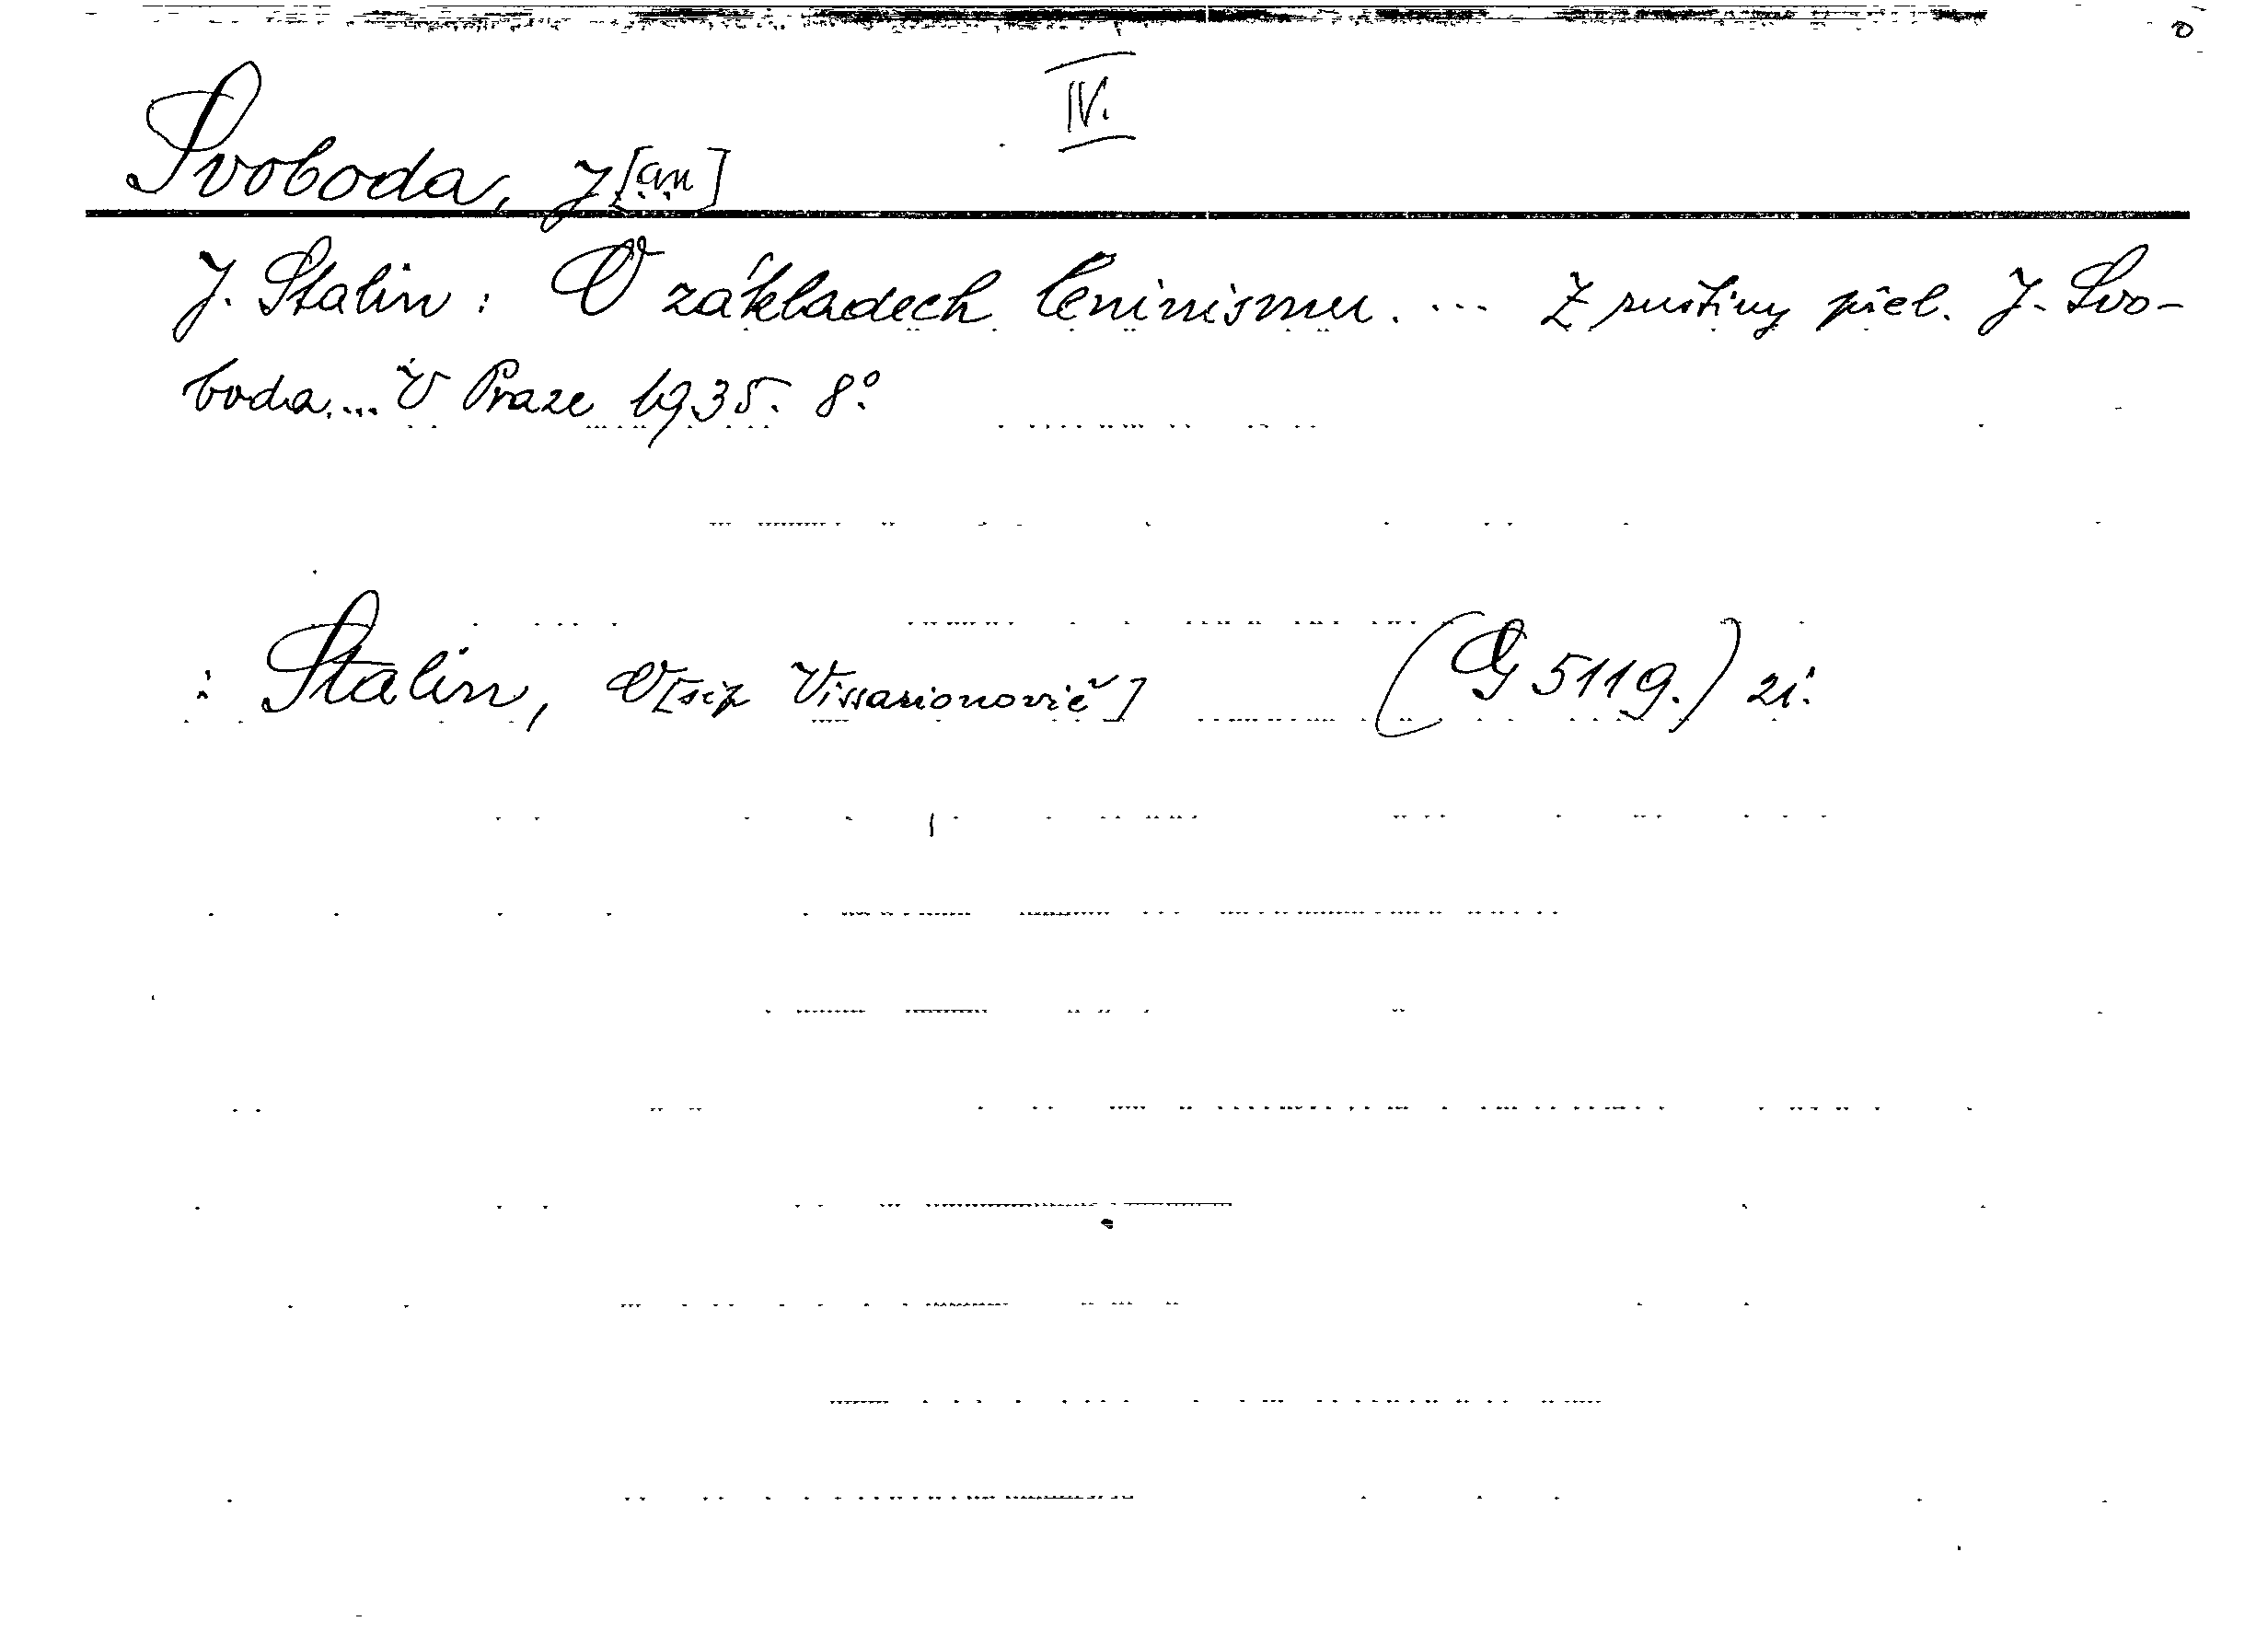 IV.
Svoboda, J[an]
J. Stalin: O základech leninismu. ... Z ruštiny přel. J. Svo-
boda... V Praze 1935. 8°.
: Stalin, O[sip Vissarionovič] (G 5119.)